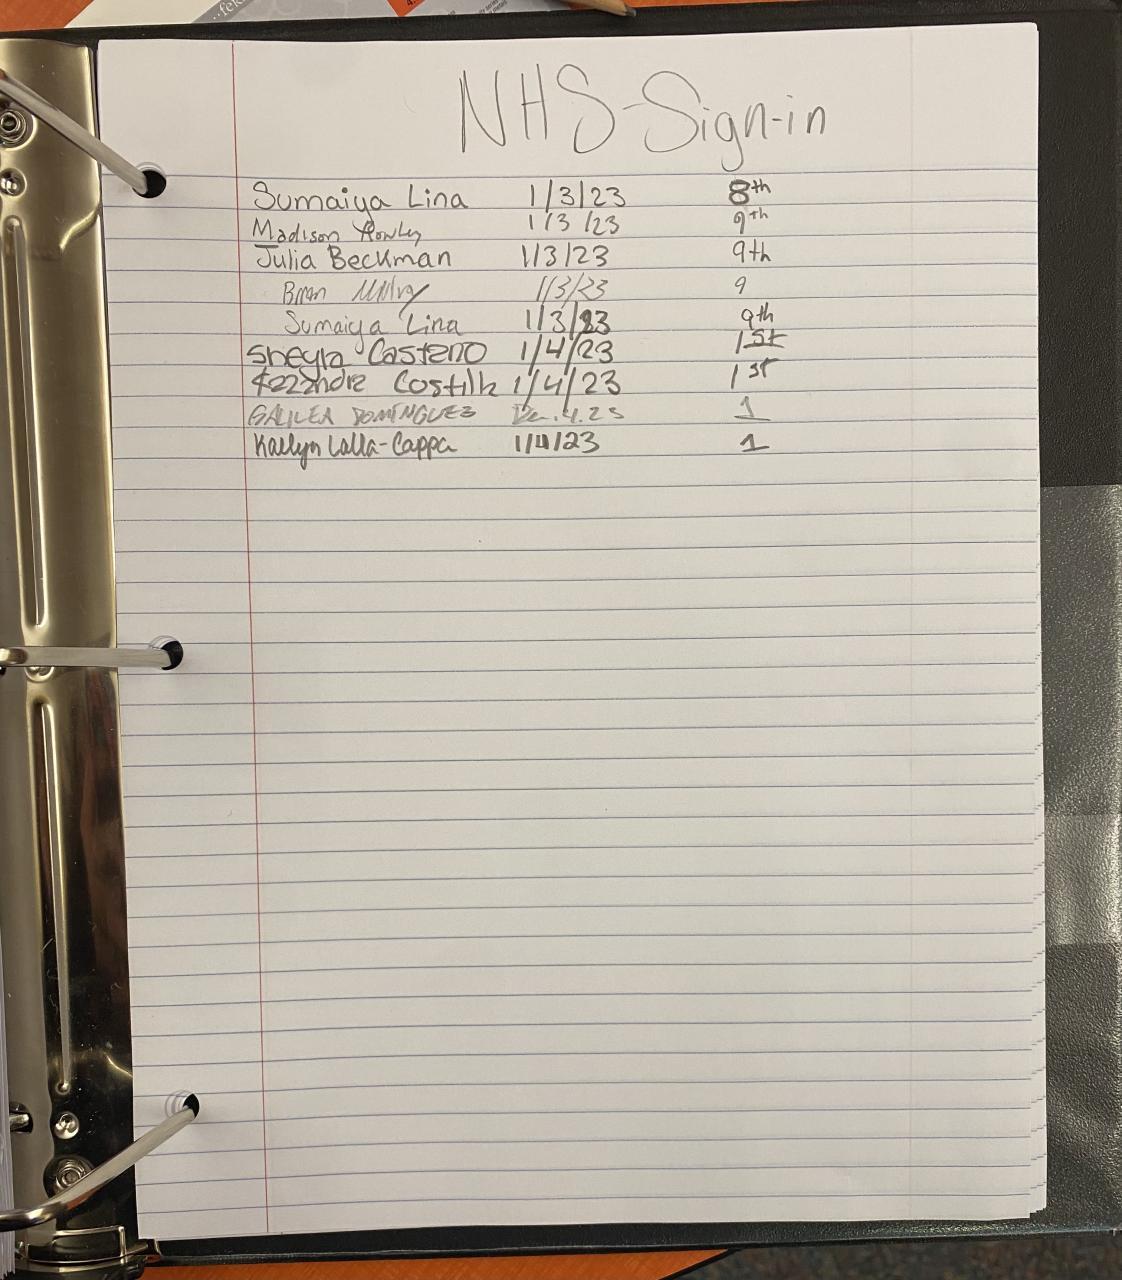 NHS-Sign-in
Sumaiya Lina 1/3/23 8th
Madison 1/3/23 9th
Julia Beckman 1/3/23 9th
Brian 1/3/23 9
Sumaiya Lina 1/3/23 9th
Sheyla 1/4/23 1st
1/4/23 1st
GALILEA DOMINGUEZ 1
Kaelyn Lalla-Cappa 1/4/23 1